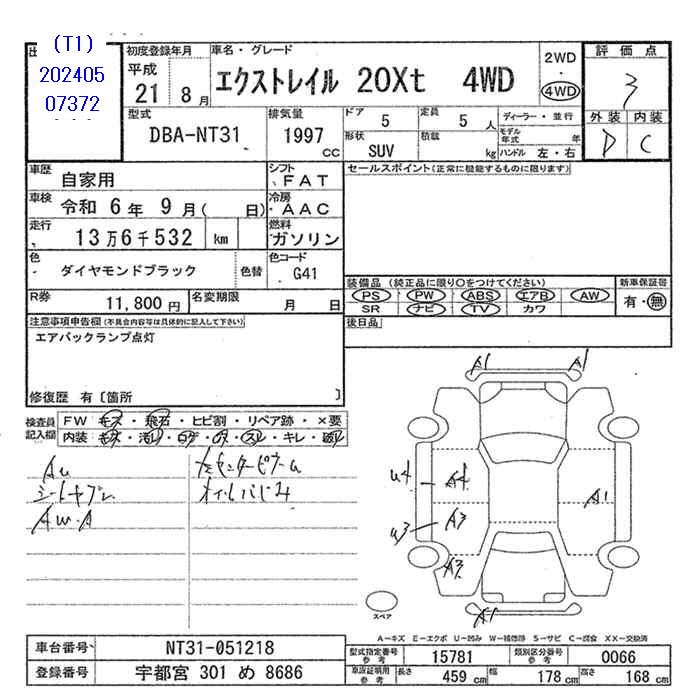 出
(T1)
202405
07372
初度登録年月
平成
21 8月
車名・グレード
エクストレイル 20Xt 4WD
2WD
・
4WD
評価点
3
外装 内装
D C
型式
DBA-NT31
排気量
1997
CC
ドア
5
定員
5人
ディーラー・並行
モデル年式 年
ハンドル 左・右
形状
SUV
積載
kg
車歴
自家用
シフト
FAT
セールスポイント(正常に機能するものに限ります)
車検
令和 6年 9月( 日)
冷房
AAC
走行
13万6千532 km
燃料
ガソリン
色
ダイヤモンドブラック
色替
色コード
G41
装備品(純正品に限り○をつけてください)
PS PW ABS エアB AW
SR ナビ TV カワ
新車保証書
有・無
R券
11,800円
名変期限
月 日
後日品
注意事項申告欄(不具合内容等は具体的に記入して下さい)
エアバックランプ点灯
修復歴 有〔箇所 〕
検査員記入欄
FW キズ・飛石・ヒビ割・リペア跡・×要
内装 キズ・汚れ・コゲ・穴・スレ・キレ・破れ
AW・A
オイルにじみ
A1 A1
u4 A4
A1
u3 A3
A3
A1
スペア
A－キズ E－エクボ U－凹み W－補修跡 S－サビ C－腐食 XX－交換済
車台番号
NT31-051218
登録番号
宇都宮 301 め 8686
型式指定番号
参考
15781
類別区分番号
参考
0066
車庫証明用
参考
長さ
459 cm
幅
178 cm
高さ
168 cm